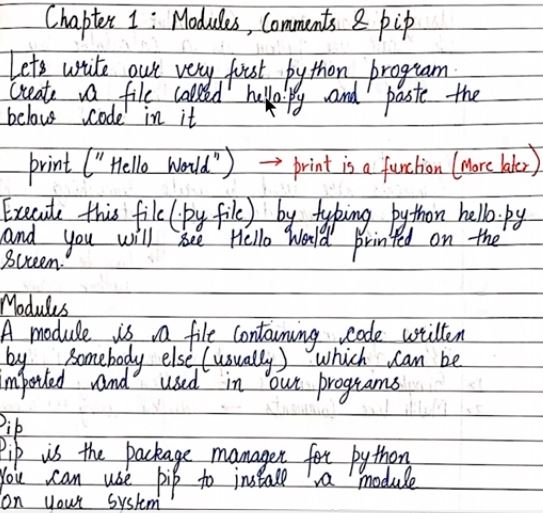 Chapter 1 : Modules, Comments & pip
Lets write our very first python program.
Create a file called hello.py and paste the
below code in it
print ("Hello World") → print is a function (More later)
Execute this file (.py file) by typing python hello.py
and you will see Hello World printed on the
Screen.
Modules
A module is a file containing code written
by somebody else (usually) which can be
imported and used in our programs
Pip
Pip is the package manager for python
You can use pip to install a module
on your system